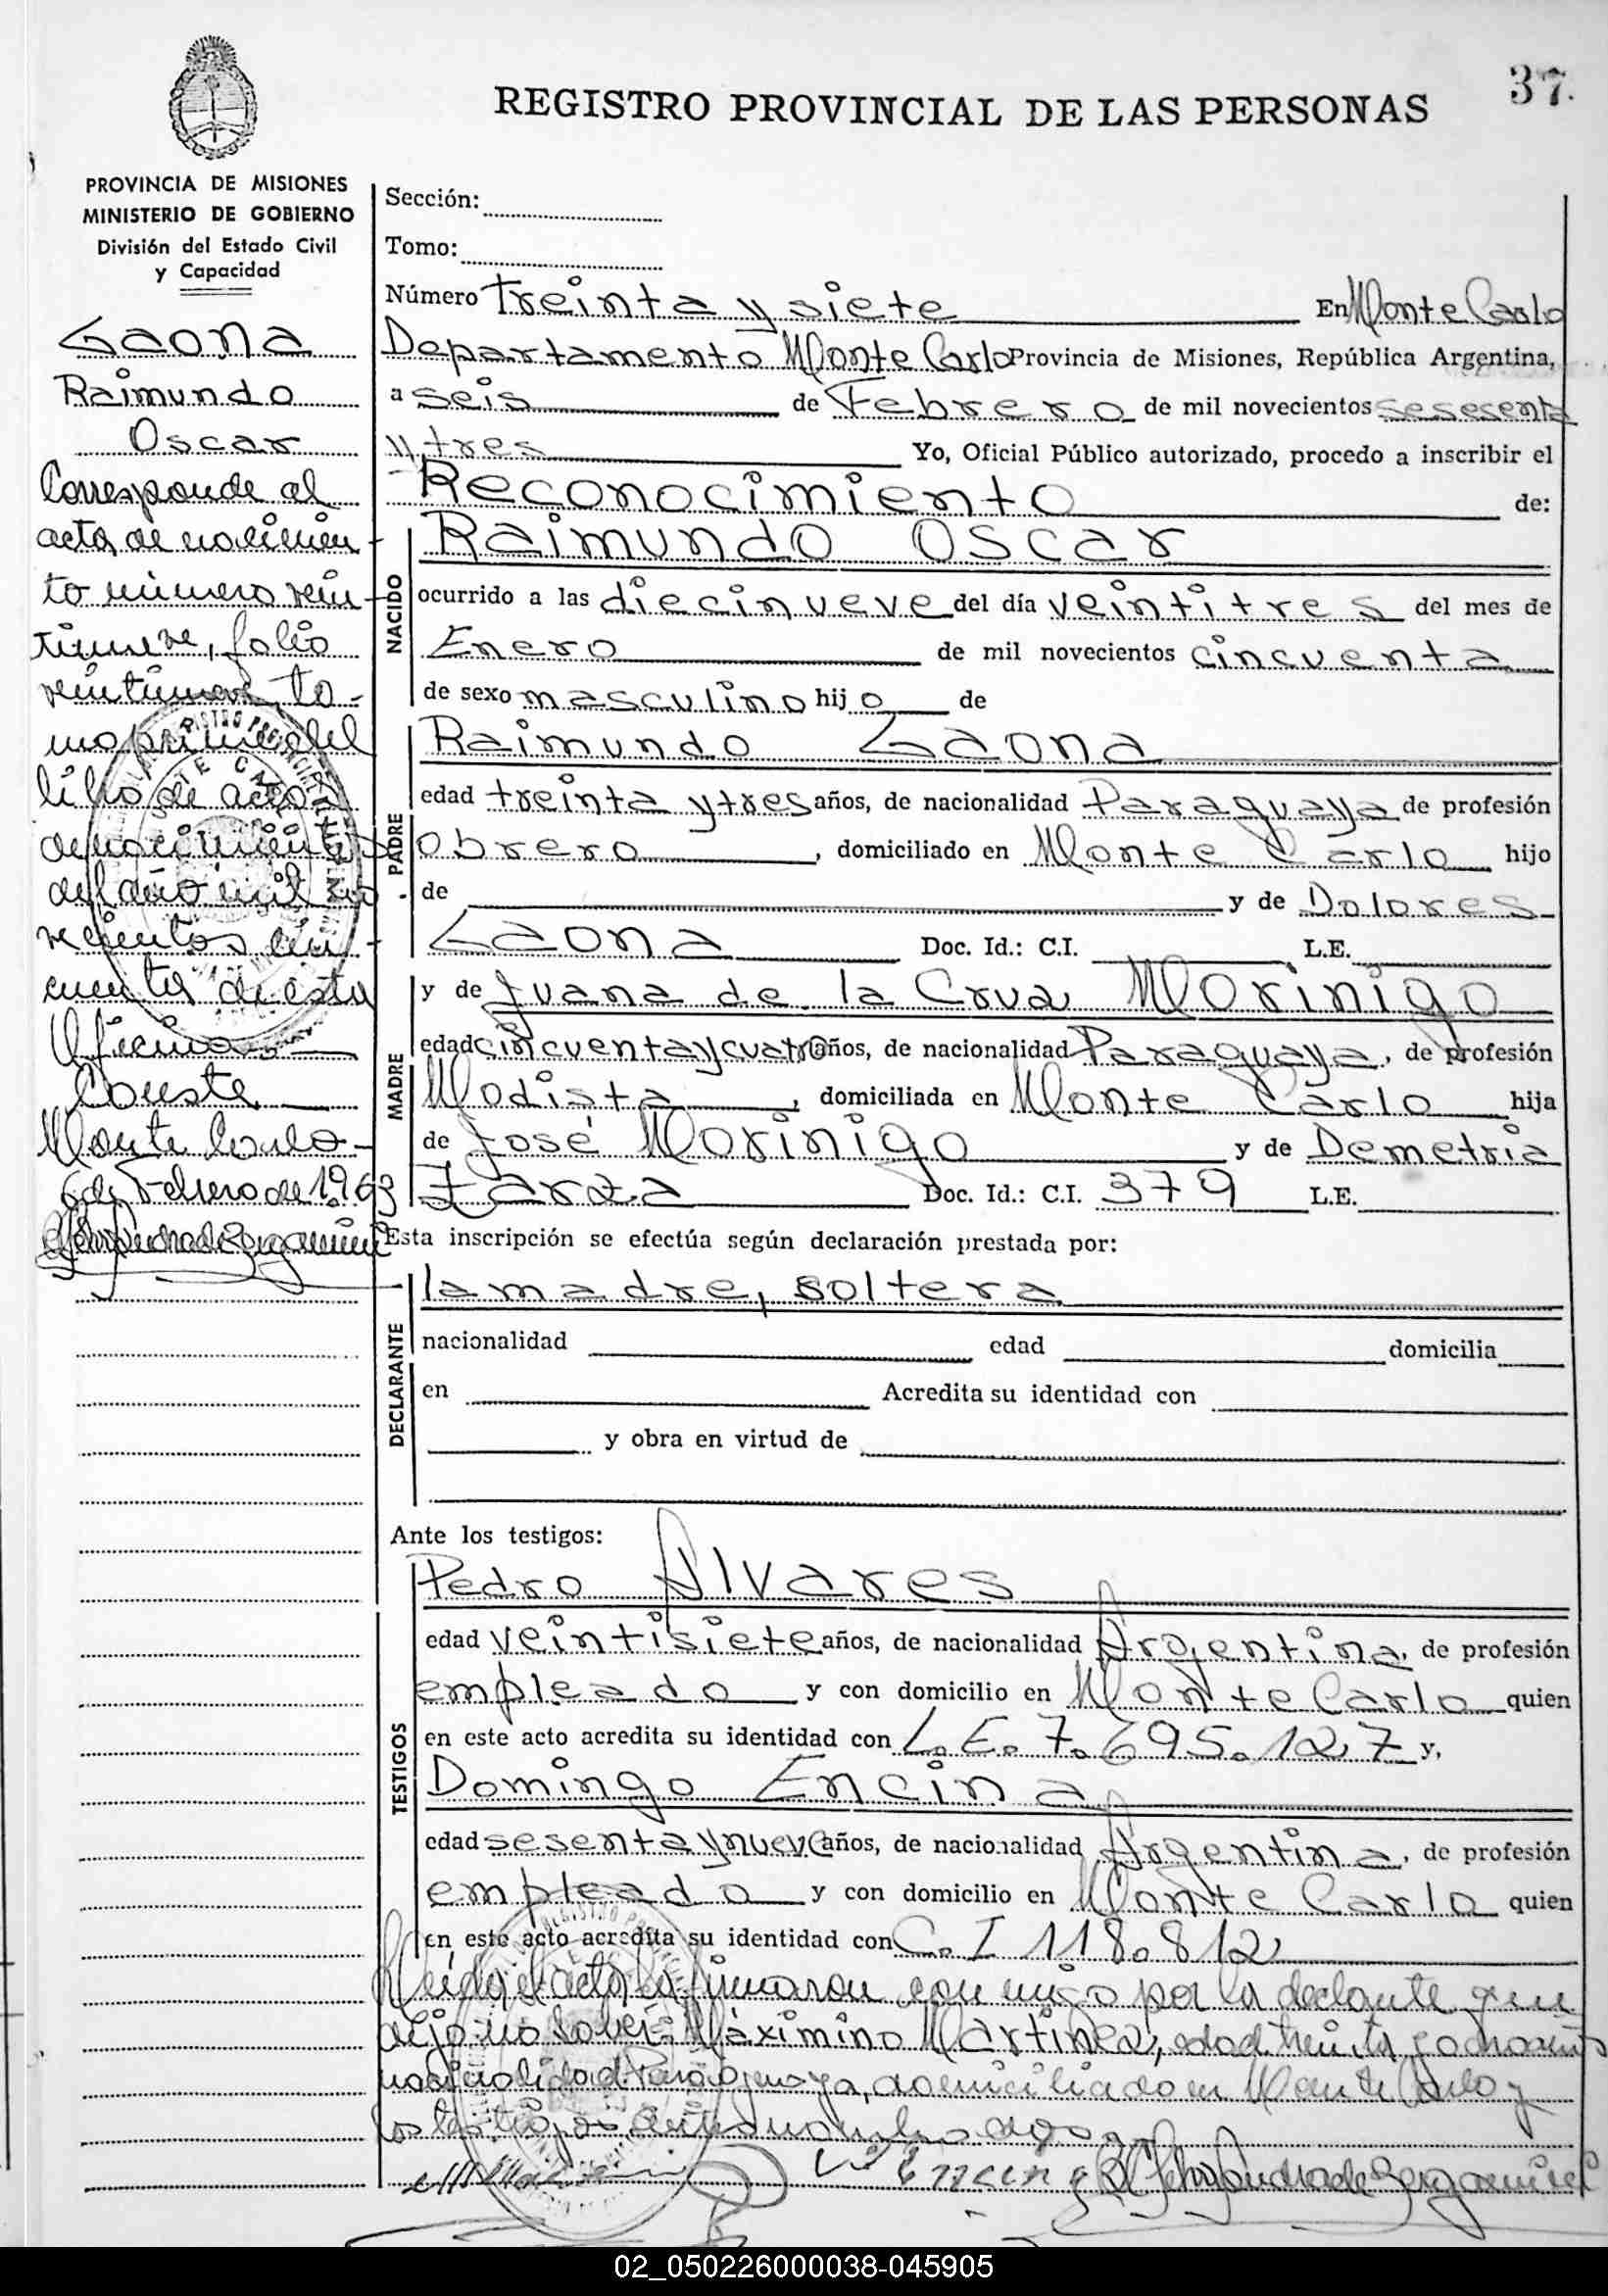 37.
REGISTRO PROVINCIAL DE LAS PERSONAS
PROVINCIA DE MISIONES
MINISTERIO DE GOBIERNO
División del Estado Civil
y Capacidad
Gaona
Raimundo
Oscar
Corresponde al
acta de nacimien-
to número vein-
tinueve, folio
veintinueve, to-
mo primero del
libro de actas
de nacimientos
del año mil no
vecientos cin-
cuenta de esta
Oficina
Conste
Monte Carlo
6 de Febrero de 1963
Sección:
Tomo:
Número Treinta y siete En Monte Carlo
Departamento Monte Carlo Provincia de Misiones, República Argentina,
a seis de Febrero de mil novecientos sesesenta
y tres Yo, Oficial Público autorizado, procedo a inscribir el
Reconocimiento de:
NACIDO
Raimundo Oscar
ocurrido a las diecinueve del día veintitres del mes de
Enero de mil novecientos cincuenta
de sexo masculino hijo de
PADRE
Raimundo Gaona
edad treinta y tres años, de nacionalidad Paraguaya de profesión
obrero, domiciliado en Monte Carlo hijo
de y de Dolores
Gaona Doc. Id.: C.I. L.E.
MADRE
y de Juana de la Cruz Morinigo
edad cincuenta y cuatro años, de nacionalidad Paraguaya, de profesión
Modista, domiciliada en Monte Carlo hija
de José Morinigo y de Demetria
Zarza Doc. Id.: C.I. 379 L.E.
Esta inscripción se efectúa según declaración prestada por:
DECLARANTE
la madre, soltera
nacionalidad edad domicilia
en Acredita su identidad con
y obra en virtud de
Ante los testigos:
TESTIGOS
Pedro Alvares
edad veintisiete años, de nacionalidad Argentina, de profesión
empleado y con domicilio en Monte Carlo quien
en este acto acredita su identidad con L.E. 7.695.127 y,
Domingo Encina
edad sesenta y nueve años, de nacionalidad Argentina, de profesión
empleado y con domicilio en Monte Carlo quien
en este acto acredita su identidad con C.I 118.812
Leída el acta la firmaron con migo por la declante quien
dijo no saber Máximino Martinez, edad treinta y ocho años
nacionalidad Paraguaya, domiciliado en Monte Carlo y
los testigos antes nombrados
Encina
02_050226000038-045905